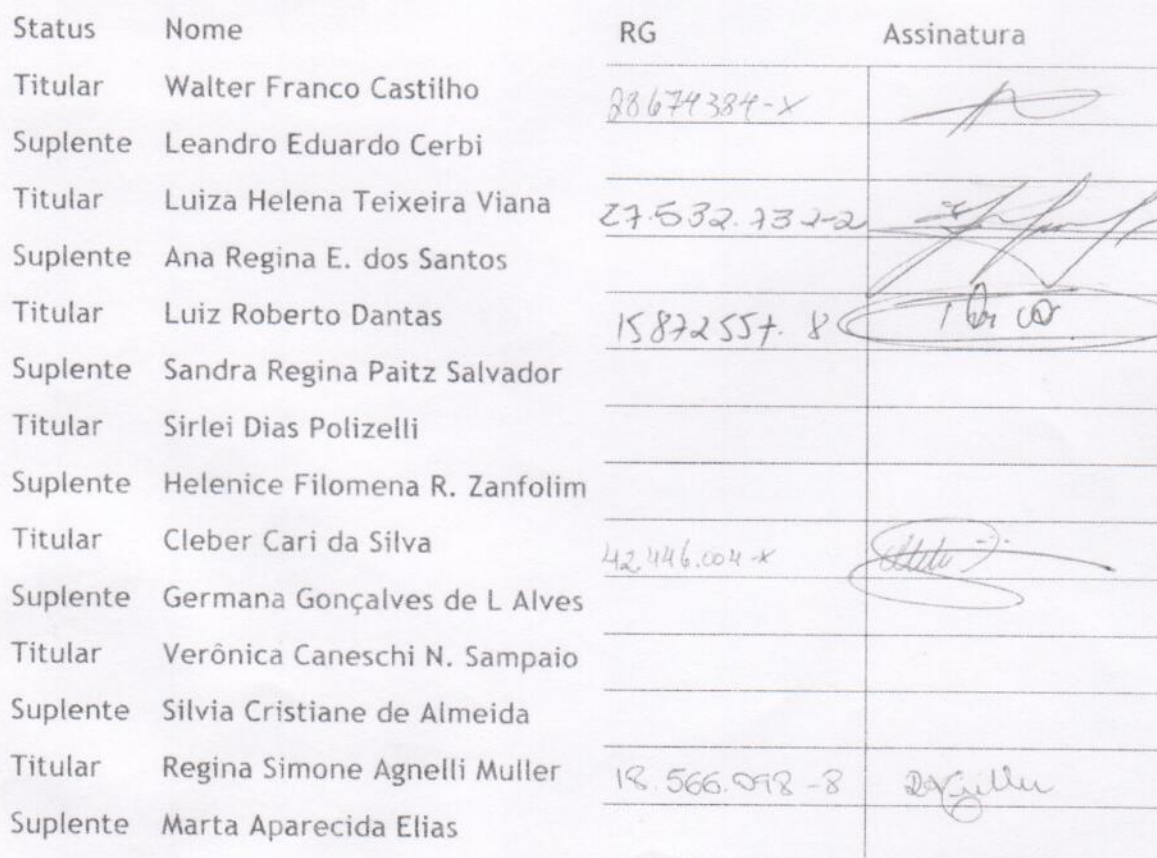 Status Nome RG Assinatura
Titular Walter Franco Castilho 28674384-X
Suplente Leandro Eduardo Cerbi
Titular Luiza Helena Teixeira Viana 27.532.732-2
Suplente Ana Regina E. dos Santos
Titular Luiz Roberto Dantas 15872557. 8
Suplente Sandra Regina Paitz Salvador
Titular Sirlei Dias Polizelli
Suplente Helenice Filomena R. Zanfolim
Titular Cleber Cari da Silva 42.446.004-X
Suplente Germana Gonçalves de L Alves
Titular Verônica Caneschi N. Sampaio
Suplente Silvia Cristiane de Almeida
Titular Regina Simone Agnelli Muller 18.566.098-8
Suplente Marta Aparecida Elias